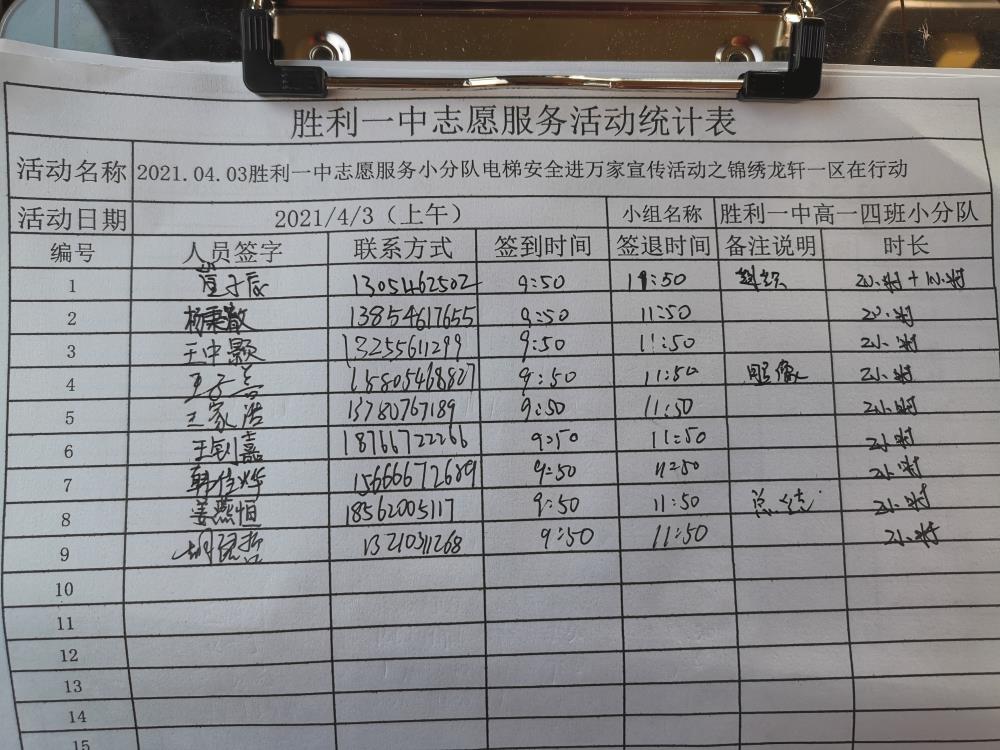 胜利一中志愿服务活动统计表
活动名称 2021.04.03胜利一中志愿服务小分队电梯安全进万家宣传活动之锦绣龙轩一区在行动
活动日期 2021/4/3（上午） 小组名称 胜利一中高一四班小分队
编号 人员签字 联系方式 签到时间 签退时间 备注说明 时长
1 9:50 11:50 2小时+1小时
2 13854617655 9:50 11:50 2小时
3 王中颢 13255611299 9:50 11:50 2小时
4 15805468827 9:50 11:50 照像 2小时
5 王家浩 13780767189 9:50 11:50 2小时
6 王钊嘉 18766722266 9:50 11:50 2小时
7 15666672689 9:50 11:50 2小时
8 姜燕恒 18562005117 9:50 11:50 总结 2小时
9 9:50 11:50 2小时
10
11
12
13
14
15